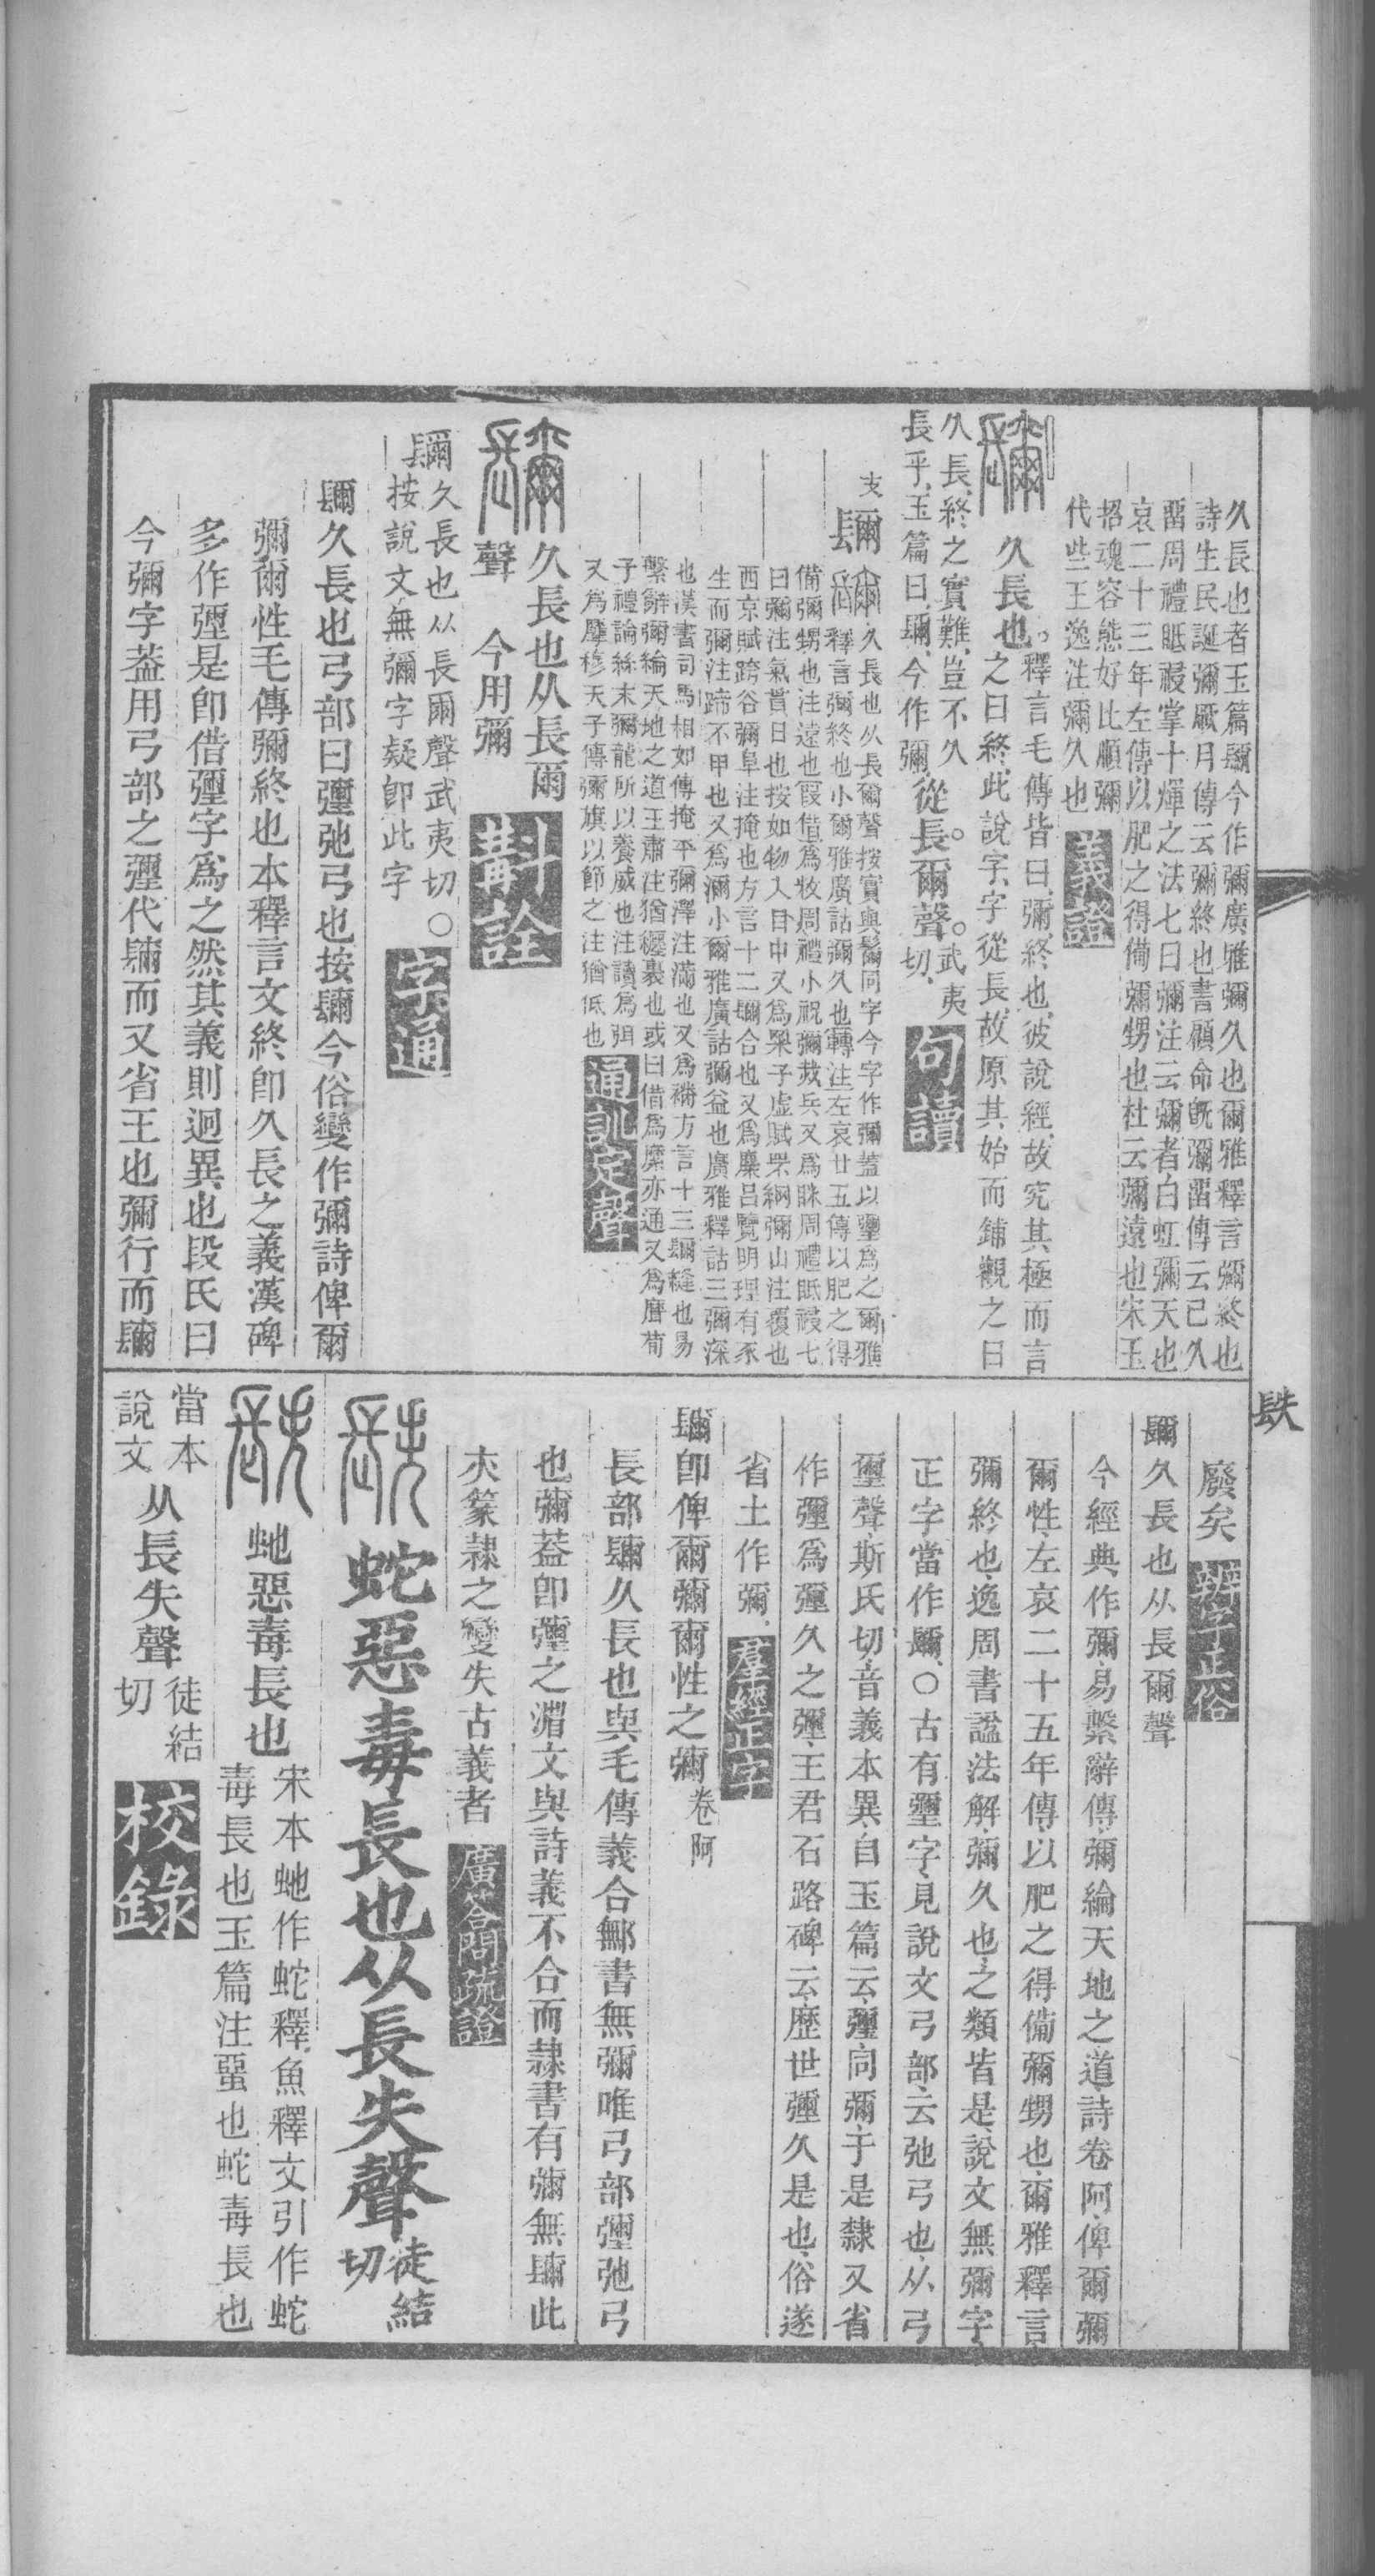 久長也者玉篇镾今作彌廣雅彌久也爾雅釋言彌終也
詩生民誕彌厥月傳云彌終也書顧命旣彌畱傳云已久
畱周禮眂祲掌十煇之法七曰彌注云彌者白虹彌天也
哀二十三年左傳以肥之得備彌甥也杜云彌遠也宋玉
招魂容態好比順彌
代些王逸注彌久也
義證
久長也。釋言毛傳皆曰彌終也彼說經故究其極而言
之曰終此說字字從長故原其始而鋪觀之曰
久長終之實難豈不久
長乎玉篇曰镾今作彌
從長。爾聲。武夷切
句讀
支
镾
久長也从長爾聲按實與鬗同字今字作彌蓋以璽爲之爾雅
釋言彌終也小爾雅廣詁彌久也轉注左哀廿五傳以肥之得
備彌甥也注遠也叚借爲敉周禮小祝彌烖兵又爲眯周禮眂祲七
曰彌注氣貫日也按如物入目中又爲冞子虛賦罘網彌山注覆也
西京賦跨谷彌阜注掩也方言十二镾合也又爲麋呂覽明理有豕
生而彌注蹄不甲也又爲瀰小爾雅廣詁彌益也廣雅釋詁三彌深
也漢書司馬相如傳掩平彌澤注滿也又爲䊳方言十三镾縫也易
繫辭彌綸天地之道王肅注猶纏裹也或曰借爲縻亦通又爲䃺荀
子禮論絲末彌龍所以養威也注讀爲弭
又爲麾穆天子傳彌旗以節之注猶低也
通訓定聲
久長也从長爾
聲　今用彌
斠詮
镾久長也从長爾聲武夷切〇
按說文無彌字疑卽此字
字通
镾久長也弓部曰㢱弛弓也按镾今俗變作彌詩俾爾
彌爾性毛傳彌終也本釋言文終卽久長之義漢碑
多作㢱是卽借㢱字爲之然其義則迥異也段氏曰
今彌字葢用弓部之㢱代镾而又省王也彌行而镾
镻
廢矣
正俗
镾久長也从長爾聲
今經典作彌易繫辭傳彌綸天地之道詩卷阿俾爾彌
爾性左哀二十五年傳以肥之得備彌甥也爾雅釋言
彌終也逸周書謚法解彌久也之類皆是說文無彌字
正字當作镾〇古有㢱字見說文弓部云弛弓也从弓
璽聲斯氏切音義本異自玉篇云㢱同彌于是隸又省
作㢱爲㢱久之㢱王君石路碑云歷世㢱久是也俗遂
省土作彌
羣經正字
镾卽俾爾彌爾性之彌卷阿
長部镾久長也與毛傳義合鄦書無彌唯弓部㢱弛弓
也彌葢卽㢱之渻文與詩義不合而隸書有彌無镾此
夾篆隸之變失古義者
廣答問疏證
蛇惡毒長也从長失聲徒結切
虵惡毒長也
宋本虵作蛇釋魚釋文引作蛇
毒長也玉篇注蝁也蛇毒長也
當本說文
从長失聲徒結切
校錄